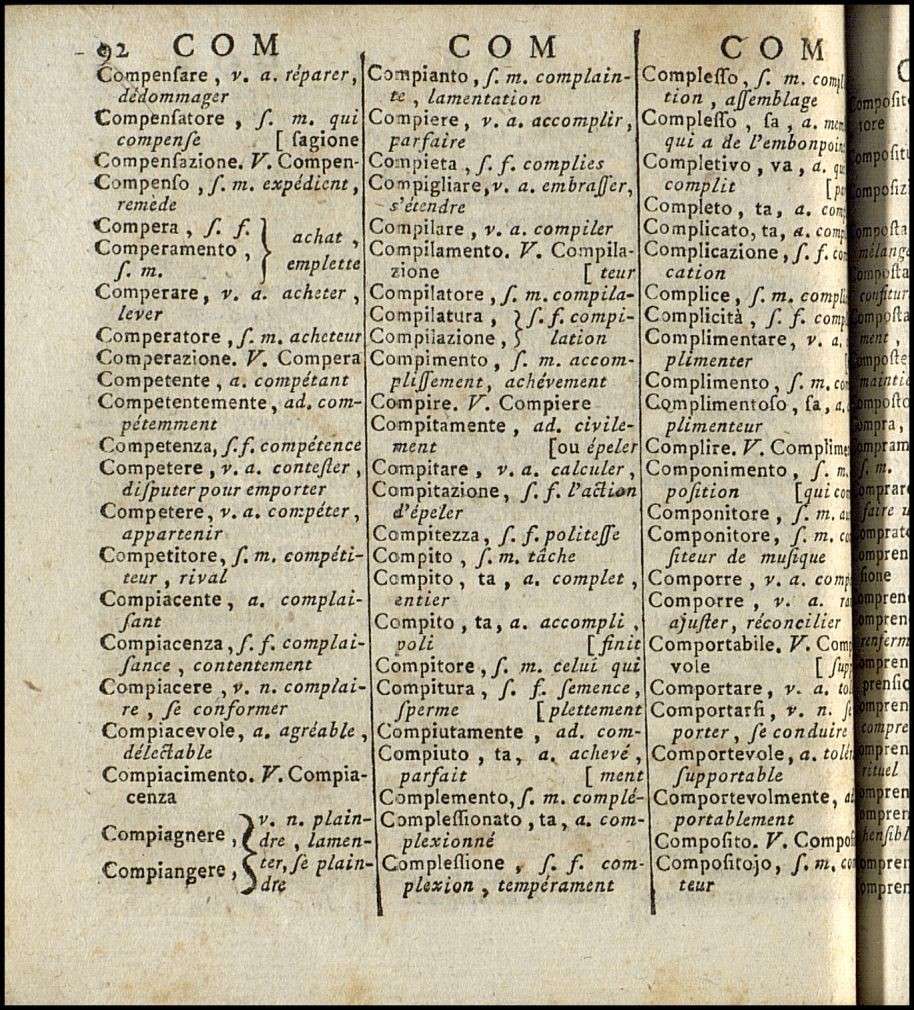 92 COM
Compenſare, v. a. réparer,
dédommager
Compenſatore, ſ. m. qui
compenſe [ſagione
Compenſazione. V. Compen-
Compenſo, ſ. m. expédient,
remède
Compera, ſ. f. } achat,
Comperamento, emplette
ſ. m.
Comperare, v. a. acheter,
lever
Comperatore, ſ. m. acheteur
Comperazione. V. Compera
Competente, a. compétant
Competentemente, ad. com-
pétemment
Competenza, ſ. f. compétence
Competere, v. a. conteſter,
diſputer pour emporter
Competere, v. a. compéter,
appartenir
Competitore, ſ. m. compéti-
teur, rival
Compiacente, a. complai-
ſant
Compiacenza, ſ. f. complai-
ſance, contentement
Compiacere, v. n. complai-
re, ſe conformer
Compiacevole, a. agréable,
délectable
Compiacimento. V. Compia-
cenza
Compiagnere, } v. n. plain-
dre, lamen-
Compiangere, ter, ſe plain-
dre
COM
Compianto, ſ. m. complain-
te, lamentation
Compiere, v. a. accomplir,
parfaire
Compieta, ſ. f. complies
Compigliare, v. a. embraſſer,
s'étendre
Compilare, v. a. compiler
Compilamento. V. Compila-
zione [teur
Compilatore, ſ. m. compila-
Compilatura, } ſ. f. compi-
Compilazione, } lation
Compimento, ſ. m. accom-
pliſſement, achévement
Compire. V. Compiere
Compitamente, ad. civile-
ment [ou épeler
Compitare, v. a. calculer,
Compitazione, ſ. f. l'action
d'épeler
Compitezza, ſ. f. politeſſe
Compito, ſ. m. tâche
Compito, ta, a. complet,
entier
Compito, ta, a. accompli,
poli [finit
Compitore, ſ. m. celui qui
Compitura, ſ. f. ſemence,
ſperme [plettement
Compiutamente, ad. com-
Compiuto, ta, a. achevé,
parfait [ment
Complemento, ſ. m. complé-
Compleſſionato, ta, a. com-
plexionné
Compleſſione, ſ. f. com-
plexion, tempérament
COM
Compleſſo, ſ. m.
tion, aſſemblage
Compleſſo, ſa, a.
qui a de l'embonpoin
Completivo, va, a.
complit
Completo, ta, a.
Complicato, ta, a.
Complicazione, ſ. f.
cation
Complice, ſ. m.
Complicità, ſ. f.
Complimentare, v. a.
plimenter
Complimento, ſ. m.
Complimentoſo, ſa, a.
plimenteur
Complire. V. Complime
Componimento, ſ. m.
poſition [qui
Componitore, ſ. m.
Componitore, ſ. m.
ſiteur de muſique
Comporre, v. a.
Comporre, v. a.
ajuſter, réconcilier
Comportabile. V.
vole
Comportare, v. a.
Comportarſi, v. n. ſe
porter, ſe conduire
Comportevole, a.
ſupportable
Comportevolmente,
portablement
Compoſito. V. Compoſ
Compoſitojo, ſ. m.
teur